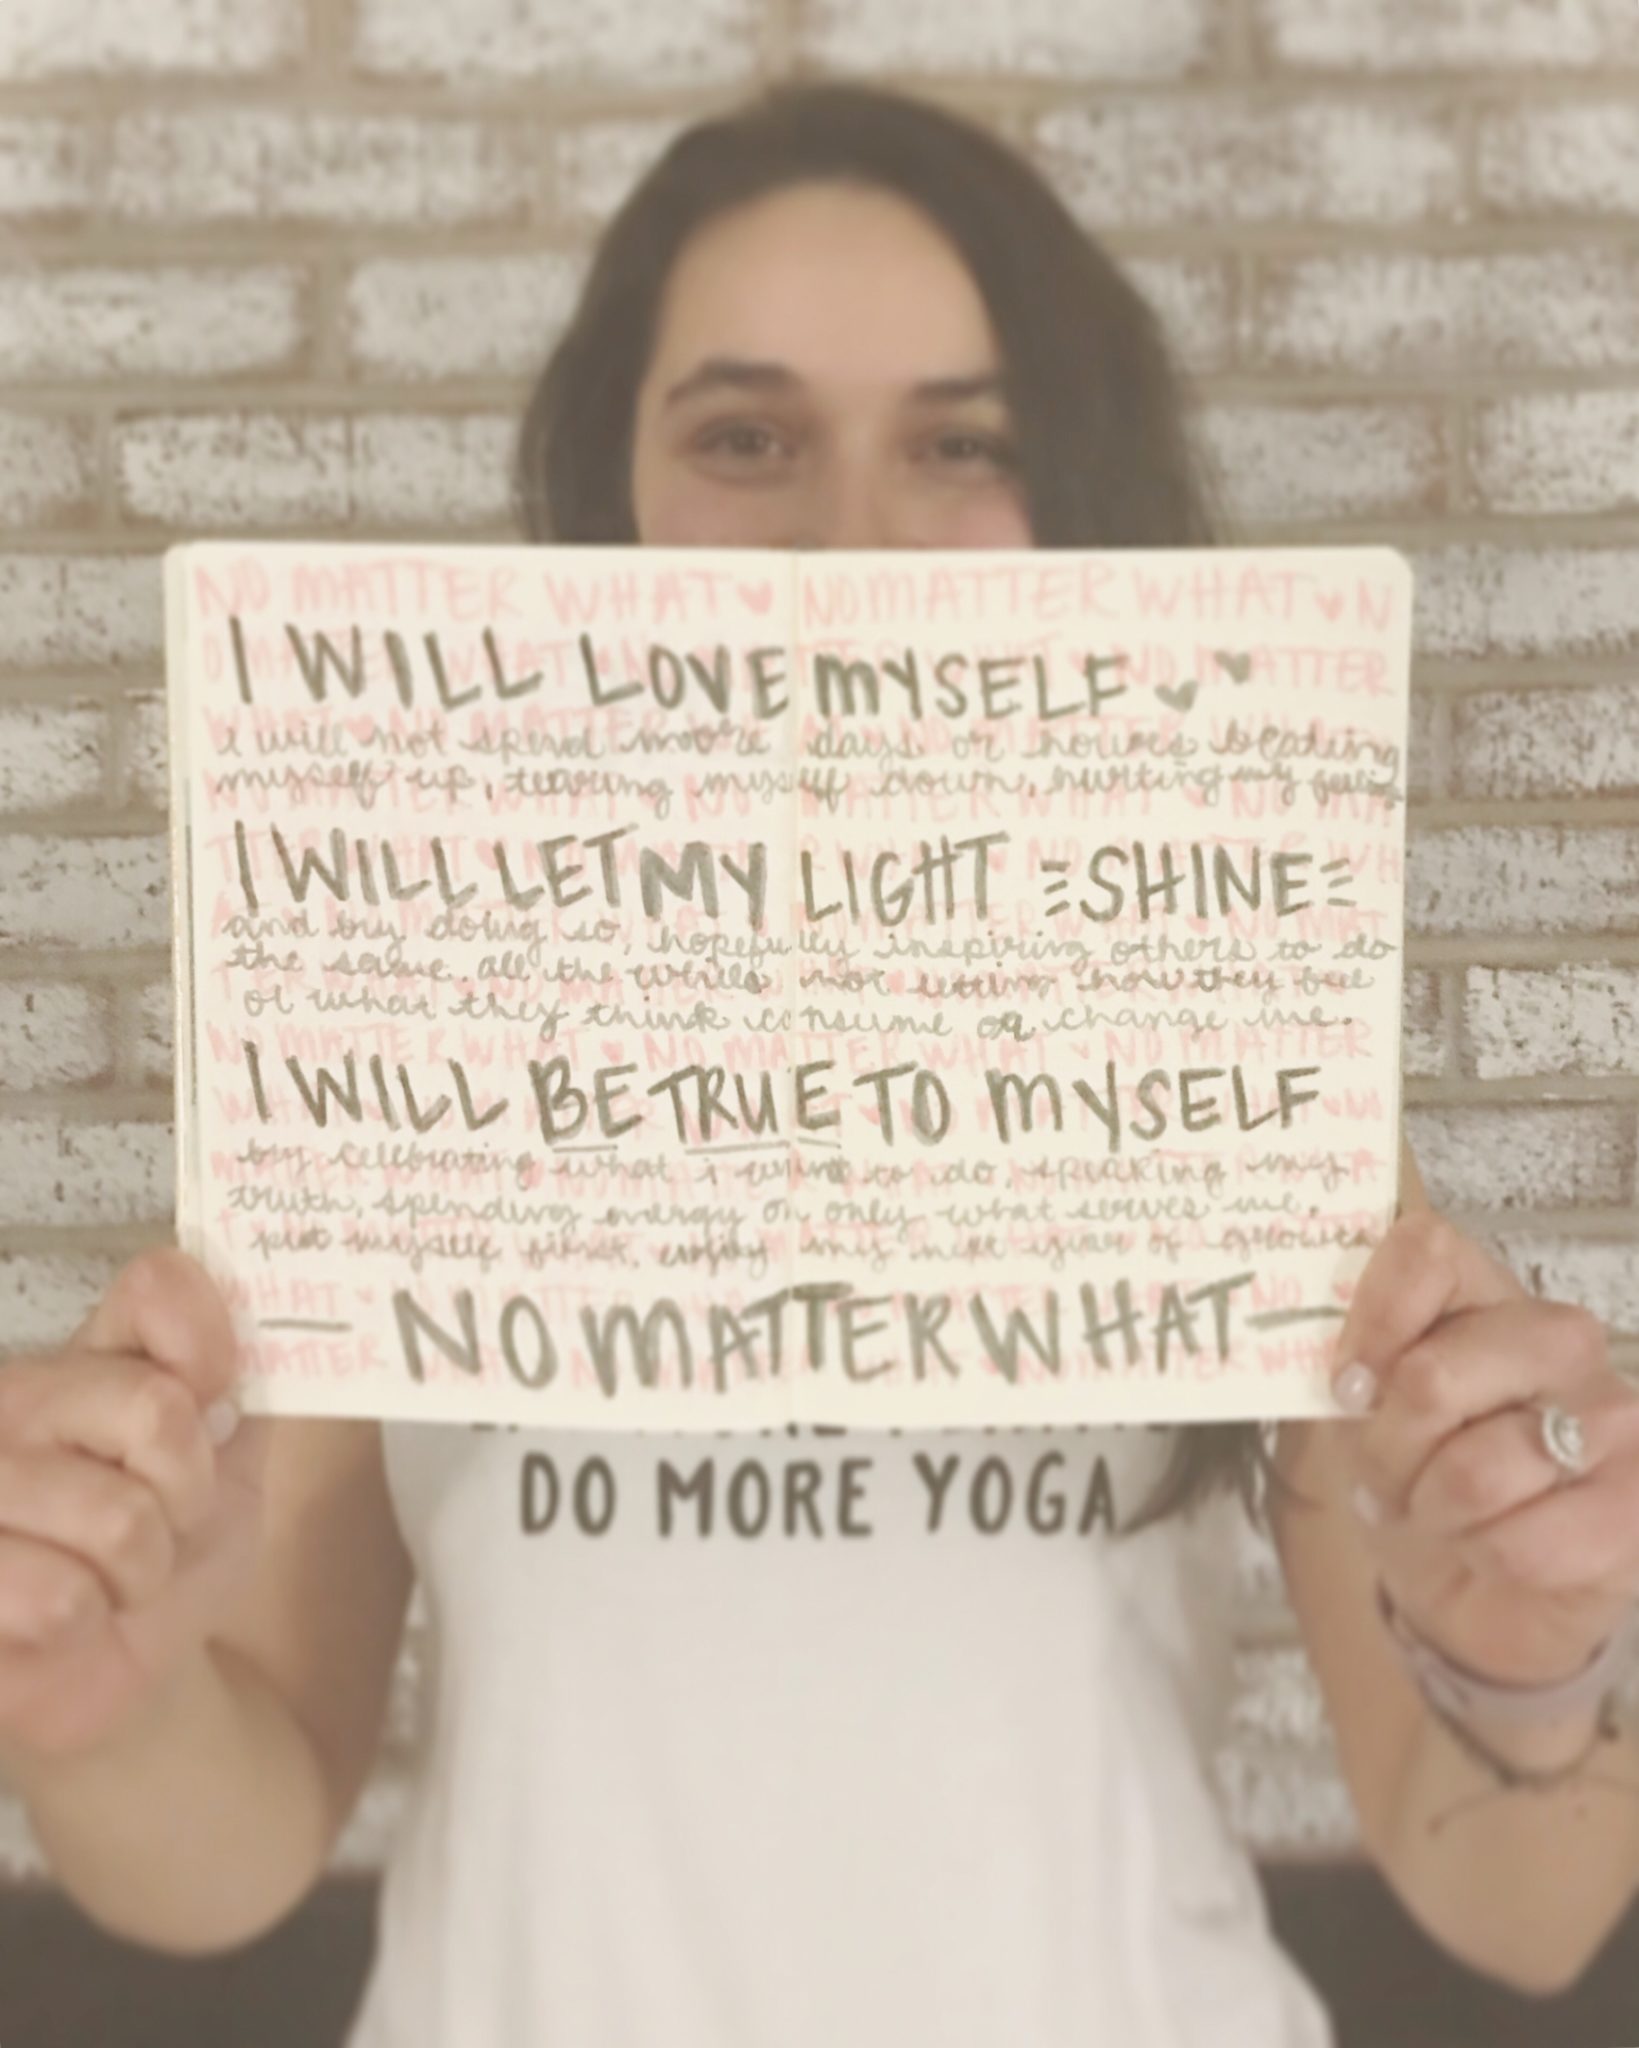 NO MATTER WHAT ♥ NO MATTER WHAT ♥ N
I WILL LOVE MYSELF
i will not spend more days or hours beating
myself up, tearing myself down, hurting my feelings
I WILL LET MY LIGHT SHINE
and by doing so, hopefully inspiring others to do
the same. all the while not letting how they feel
or what they think consume or change me.
I WILL BE TRUE TO MYSELF
by celebrating what i want to do, speaking my
truth, spending energy on only what serves me.
put myself first. enjoy my next year of growth
— NO MATTER WHAT —
DO MORE YOGA